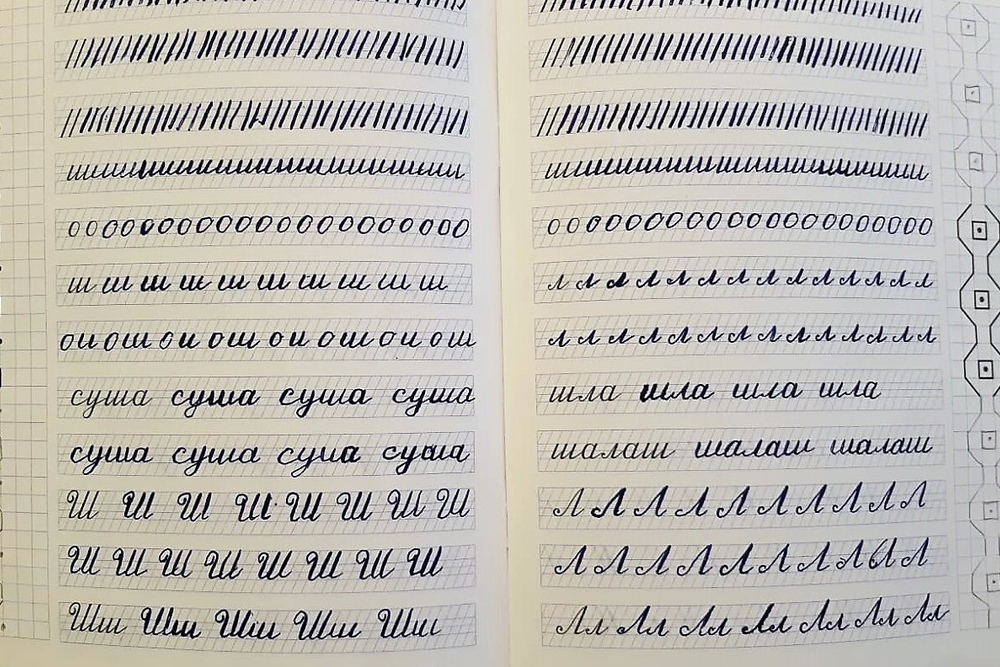 о о о о о о о о о о о о о о о о о о о о о о
ш ш ш ш ш ш ш ш ш ш
ои ош ои ош ои ош ои ош
суша суша суша суша
суша суша суша суша
Ш Ш Ш Ш Ш Ш Ш Ш
Ш Ш Ш Ш Ш Ш Ш Ш
Шш Шш Шш Шш Шш
о о о о о о о о о о о о о о о о о о о о
л л л л л л л л л л л л л л
л л л л л л л л л л л л л л
шла шла шла шла
шалаш шалаш шалаш
Л Л Л Л Л Л Л Л Л Л
Л Л Л Л Л Л Л Л Л Л
Лл Лл Лл Лл Лл Лл Лл